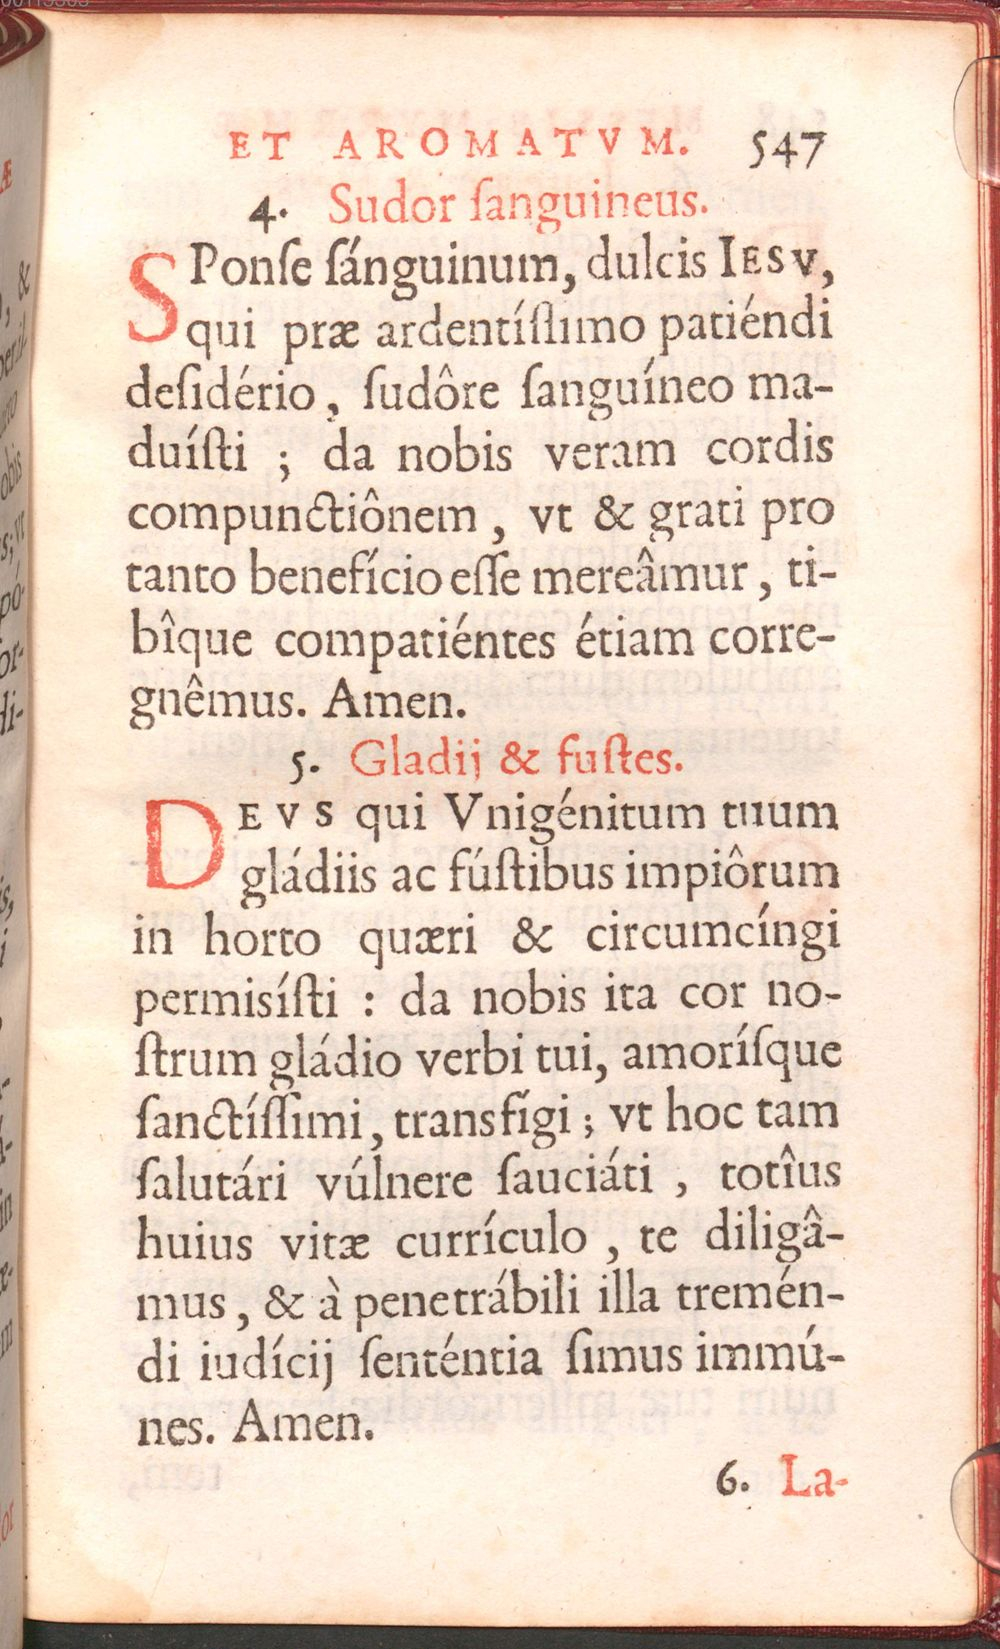 ET AROMATVM. 547
4. Sudor ſanguineus.
SPonſe ſánguinum, dulcis IESV,
qui præ ardentíſſimo patiéndi
deſidério, ſudôre ſanguíneo ma-
duíſti ; da nobis veram cordis
compunctiônem, vt & grati pro
tanto benefício eſſe mereâmur, ti-
bîque compatiéntes étiam corre-
gnêmus. Amen.
5. Gladij & fuſtes.
DEVS qui Vnigénitum tuum
gládiis ac fúſtibus impiôrum
in horto quæri & circumcíngi
permisíſti : da nobis ita cor no-
ſtrum gládio verbi tui, amoríſque
ſanctíſſimi, transfígi ; vt hoc tam
ſalutári vúlnere ſauciáti , totîus
huius vitæ currículo , te diligâ-
mus, & à penetrábili illa tremén-
di iudícij ſenténtia ſimus immú-
nes. Amen.
6. La-